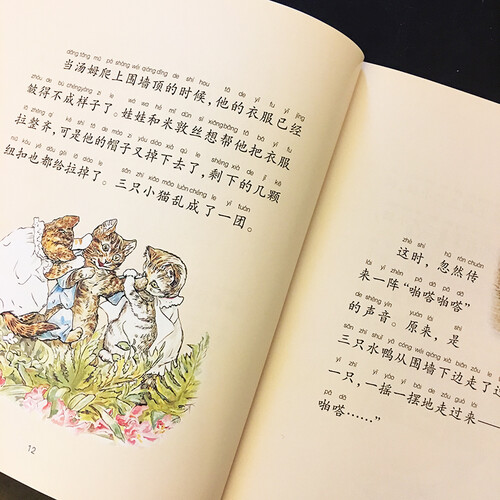 dāng tāng mǔ pá shàng wéi qiáng dǐng de shí hou tā de yī fu yǐ jīng
当汤姆爬上围墙顶的时候，他的衣服已经
zhòu de bù chéng yàng zi le wá wa hé mǐ dūn sī xiǎng bāng tā bǎ yī fu
皱得不成样子了。娃娃和米敦丝想帮他把衣服
lā zhěng qí kě shì tā de mào zi yòu diào xià qù le shèng xià de jǐ kē
拉整齐，可是他的帽子又掉下去了，剩下的几颗
niǔ kòu yě dōu gěi lā diào le sān zhī xiǎo māo luàn chéng le yī tuán
纽扣也都给拉掉了。三只小猫乱成了一团。
12
zhè shí hū rán chuán
这时，忽然传
lái yī zhèn pā dā pā dā
来一阵“啪嗒啪嗒”
de shēng yīn yuán lái shì
的声音。原来，是
sān zhī shuǐ yā cóng wéi qiáng xià biān zǒu le
三只水鸭从围墙下边走了
yī zhī yī yáo yī bǎi de zǒu guò lái
一只，一摇一摆地走过来——
pā dā
啪嗒……”